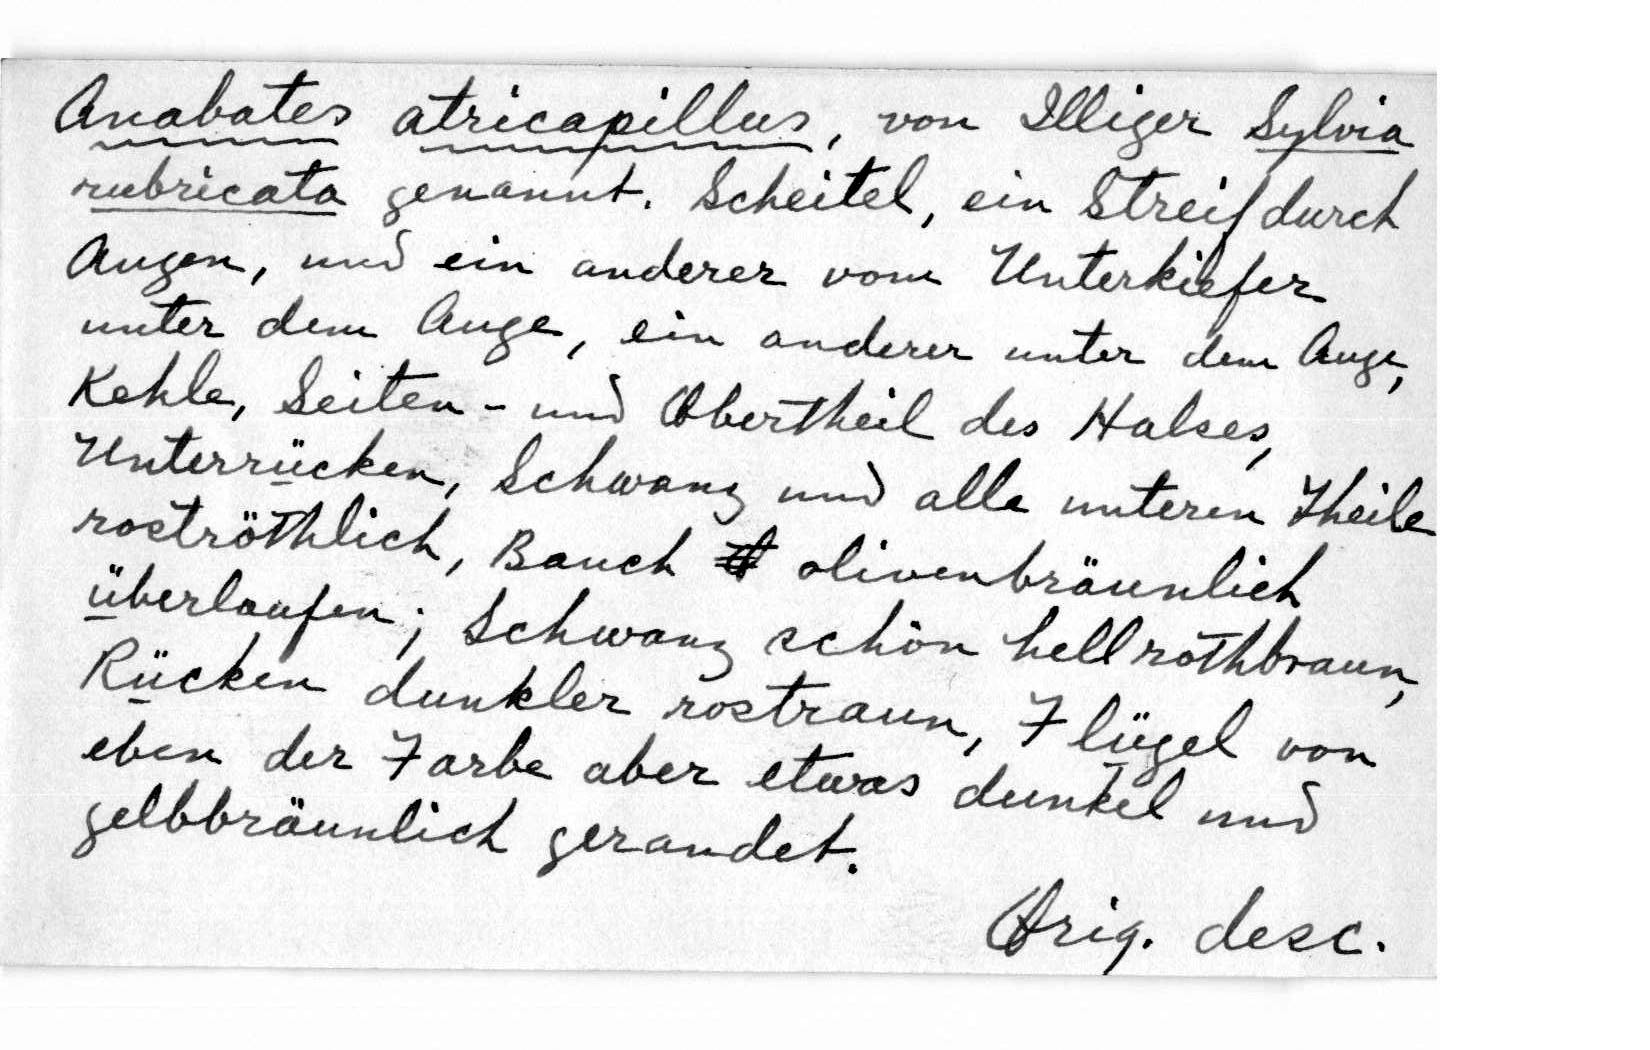 Anabates atricapillus, von Illiger Sylvia
rubricata genannt. Scheitel, ein Streif durch
Augen, und ein anderer vom Unterkiefer
unter dem Auge, ein anderer unter dem Auge,
Kehle, Seiten- und Obertheil des Halses,
Unterrücken, Schwanz und alle unteren Theile
roströthlich, Bauch olivenbräunlich
überlaufen; Schwanz schön hell rothbraun,
Rücken dunkler rostraun, Flügel von
eben der Farbe aber etwas dunkel und
gelbbräunlich gerandet.
Orig. desc.